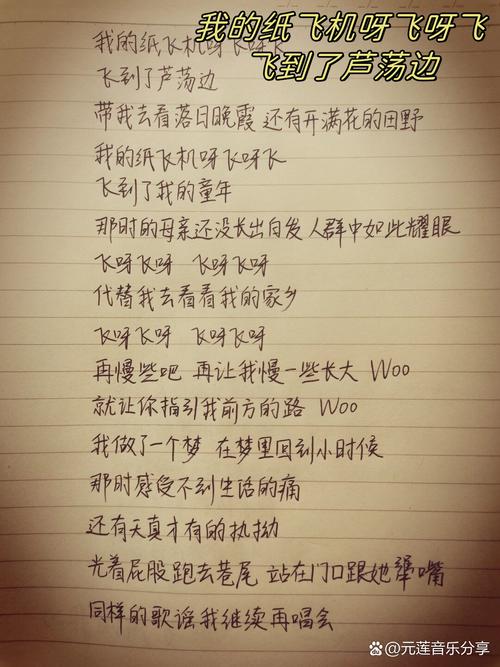 我的纸飞机呀飞呀飞
飞到了芦荡边
我的纸飞机呀飞呀飞
飞到了芦荡边
带我去看落日晚霞 还有开满花的田野
我的纸飞机呀飞呀飞
飞到了我的童年
那时的母亲还没长出白发 人群中如此耀眼
飞呀飞呀 飞呀飞呀
代替我去看看我的家乡
飞呀飞呀 飞呀飞呀
再慢些吧 再让我慢一些长大 Woo
就让你指引我前方的路 Woo
我做了一个梦 在梦里回到小时候
那时感受不到生活的痛
还有天真才有的执拗
光着屁股跑去巷尾 站在门口跟她犟嘴
同样的歌谣我继续再唱会
@元莲音乐分享